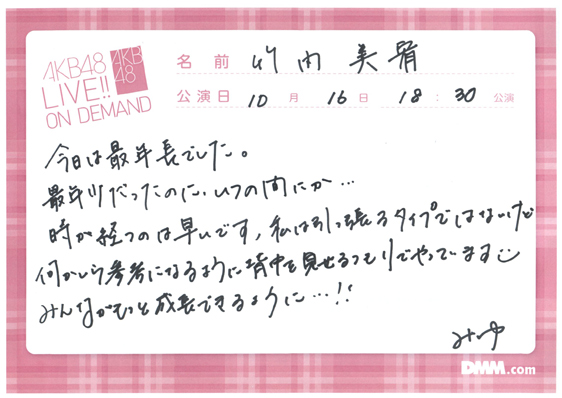 AKB48
LIVE!!
ON DEMAND
AKB
48
名前 竹内美宥
公演日 10月 16日 18:30 公演
今日は最年長でした。
最年少だったのに、いつの間にか…
時が経つのは早いです, 私は引っ張るタイプではないけど
何かしら参考になるように背中を見せるつもりでやっています
みんながもっと成長できるように…!!
みゆ
DMM.com